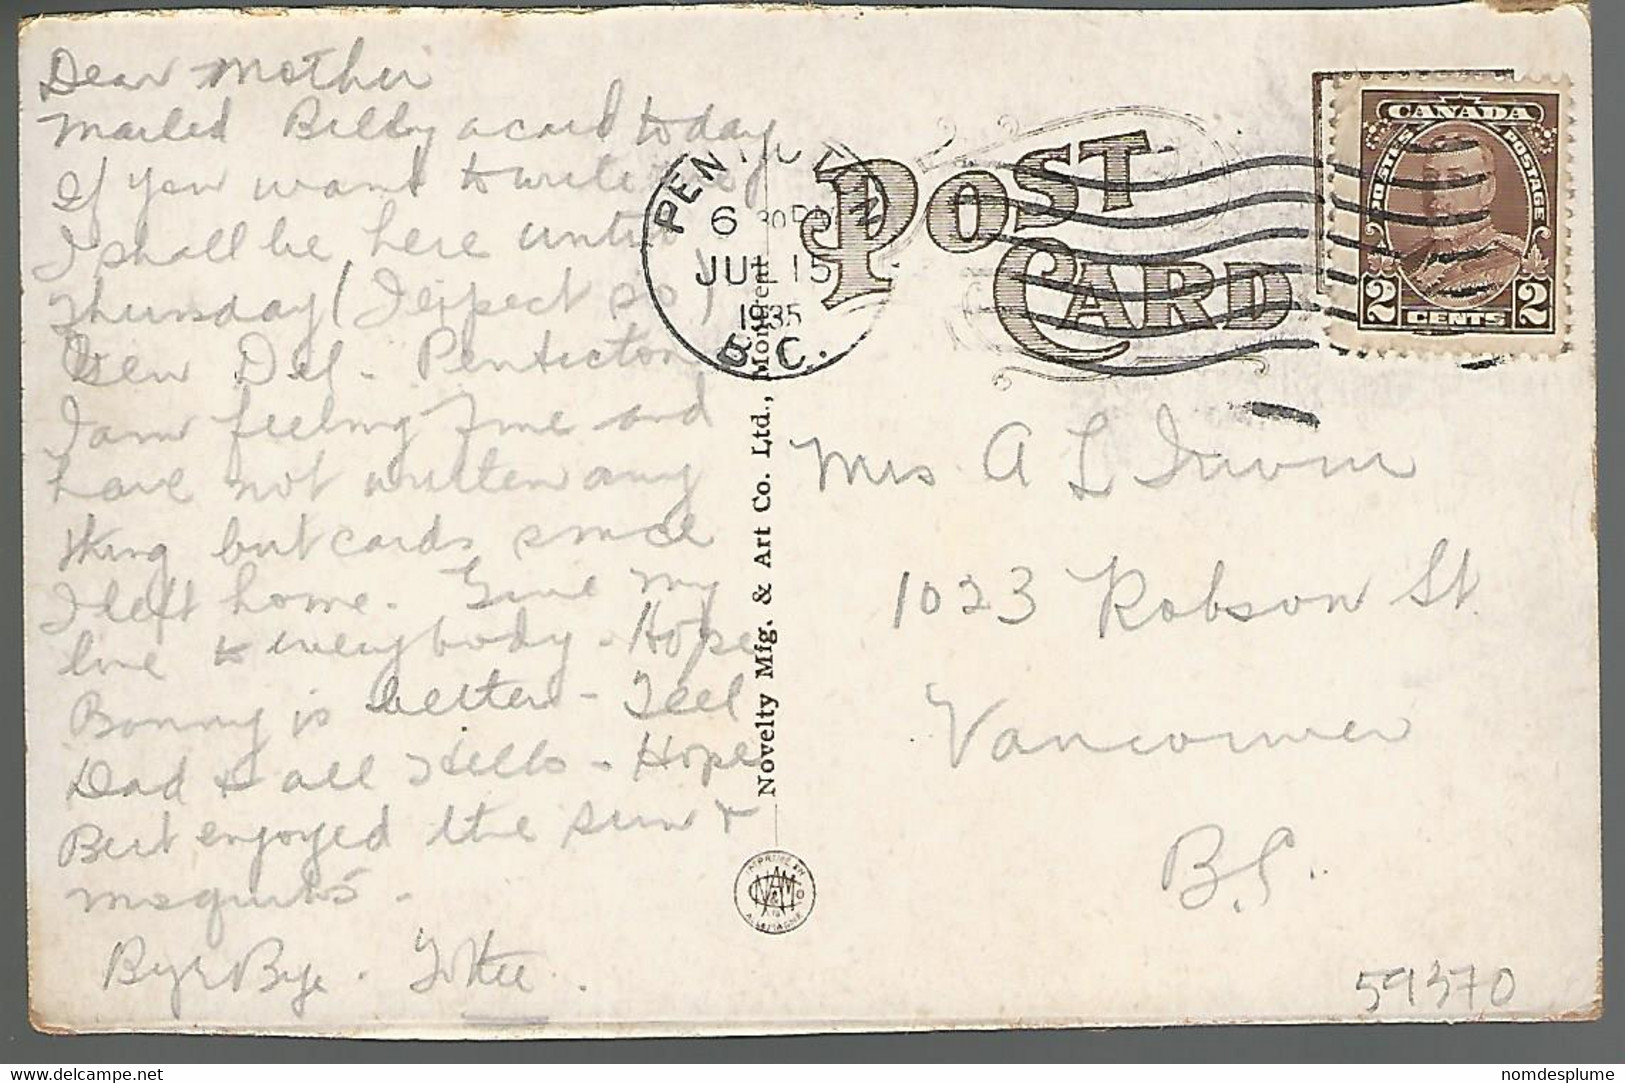 Dear Mother
Mailed Billy a card today
If you want to write me
I shall be here until
Thursday (I expect so)
Gen Del - Penticton
I am feeling fine and
have not written any
thing but cards since
I left home. Give my
love to everybody - Hope
Bonny is better - Tell
Dad & all Hello - Hope
Bert enjoyed the sun &
mosquitos -
Bye Bye.
PEN N
6 30 PM
JUL 15
1935
B.C.
POST
CARD
CANADA
POSTES POSTAGE
2 CENTS 2
Novelty Mfg. & Art Co. Ltd., Montreal
Mrs A L
1023 Robson St.
Vancouver
B.C.
ALLEMAGNE
59370
For sale on www.delcampe.net
nomdesplume